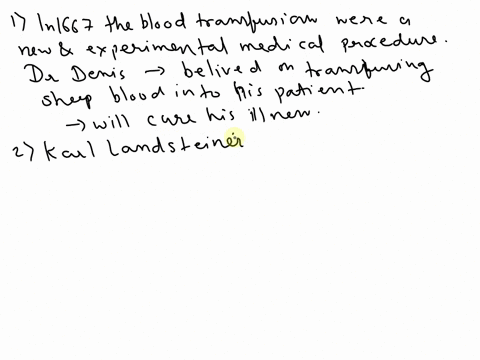 1) In 1667 the blood transfusion were a
new & experimental medical procedure.
Dr Denis → belived on transfusing
sheep blood into his patient.
→ will care his illness.
2) Karl Landsteiner